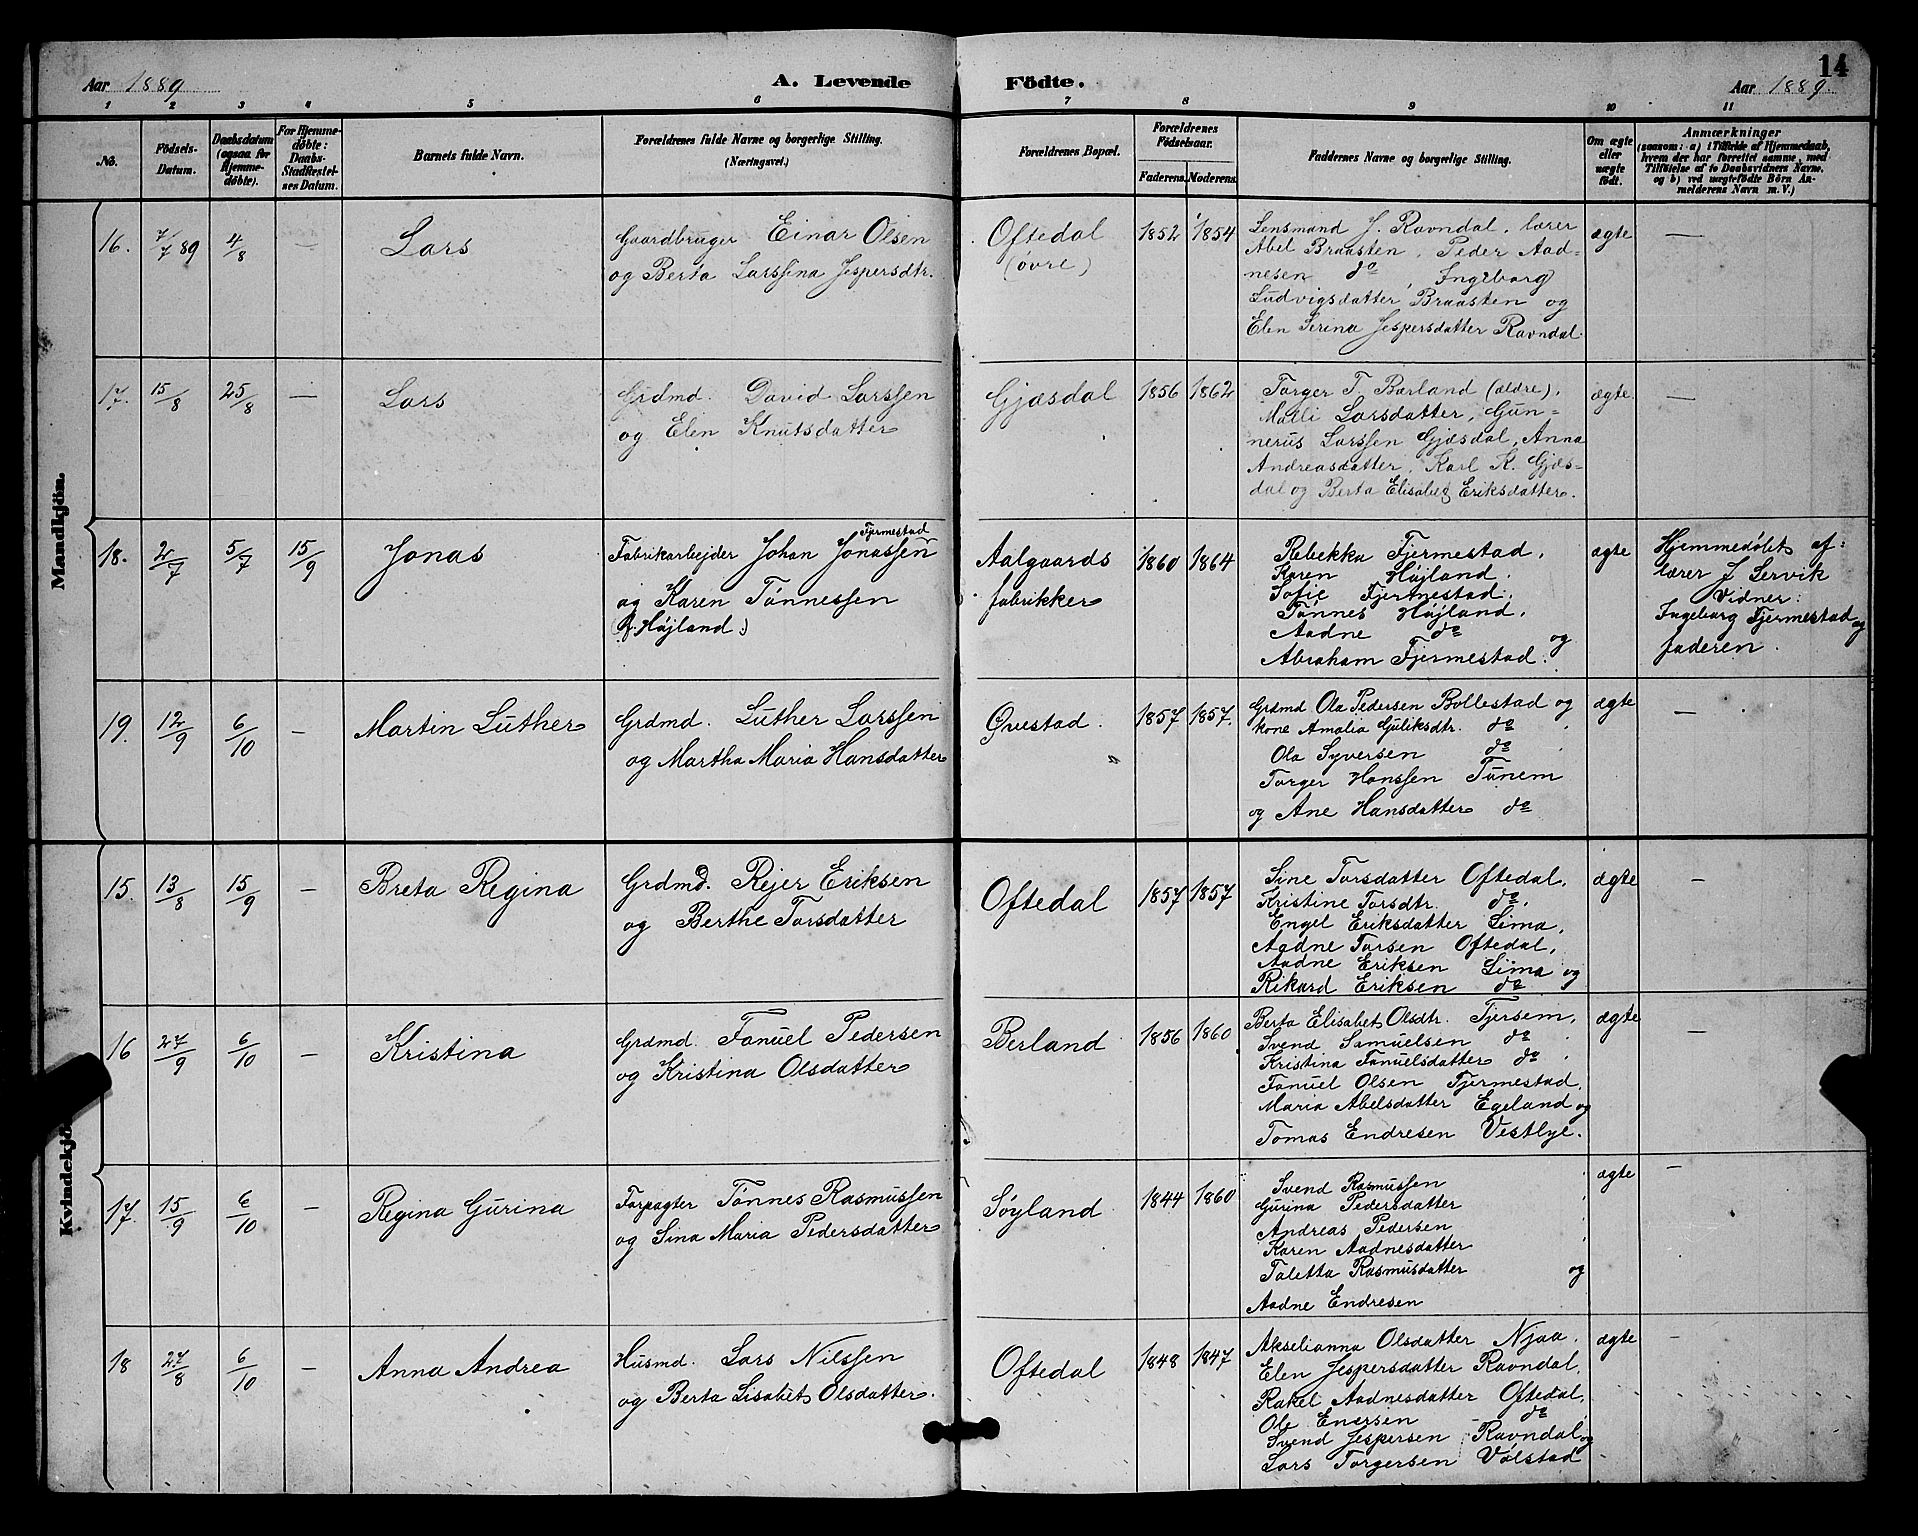 14
Aar 1889
A. Levende Födte.
Aar 1889.
1 2 3 4 5 6 7 8 9 10 11
No.
Födsels-
Datum.
Daabsdatum
(ogsaa for
Hjemme-
döbte).
For Hjemme-
døbte:
Daabs-
Stadfestel-
ses Datum.
Barnets fulde Navn.
Forældrenes fulde Navne og borgerlige Stilling.
(Næringsvei.)
Forældrenes Bopæl.
Forældrenes
Födselsaar.
Faderens. Moderens.
Faddernes Navne og borgerlige Stilling.
Om ægte
eller
uægte
födt.
Anmærkninger
(saasom: a) i Tilfælde af Hjemmedaab,
hvem der har forrettet samme, med
Tilföielse af to Daabsvidners Navne,
og b) ved uægtefödte Börn An-
melderens Navn m. V.)
Mandkjön.
16. 7/7 89 4/8 — Lars
Gaardbruger Einar Olsen
og Berta Larssina Jespersdtr.
Oftedal
(øvre)
1852 1854
Lensmand J. Ravndal, lærer
Abel Braasten, Peder Aad-
nesen do, Ingeborg
Ludvigsdatter Braasten og
Elen Serina Jespersdatter Ravndal.
ægte —
17. 15/8 25/8 — Lars
Grdmd. David Larssen
og Elen Knutsdatter
Gjæsdal
1856 1862
Torger T. Bærland (ældre),
Malli Larsdatter, Gun-
nerus Larssen Gjæsdal, Anna
Andreasdatter, Karl K. Gjæs-
dal og Berta Elisabet Eriksdatter.
ægte —
18. 2/7 5/7 15/9 Jonas
Fjermestad
Fabrikarbejder Johan Jonassen
og Karen Tønnessen
(f. Højland.)
Aalgaards
fabrikker
1860 1864
Rebekka Fjermestad,
Karen Højland,
Sofie Fjermestad,
Tønnes Højland,
Aadne do og
Abraham Fjermestad.
ægte
Hjemmedøbt af
lærer J Servik
Vidner:
Ingeborg Fjermestad og
faderen.
19. 12/9 6/10 — Martin Luther
Grdmd. Luther Larssen
og Martha Maria Hansdatter
Øvestad.
1857 1857.
Grdmd Ola Pedersen Bollestad og
kone Amalia Guliksdtr. do
Ola Syversen do
Torger Hanssen Tunem
og Ane Hansdatter do
ægte —
Kvindekjö
15. 13/8 15/9 — Breta Regina
Grdmd. Rejer Eriksen
og Berthe Torsdatter
Oftedal
1857 1857
Sine Torsdatter Oftedal,
Kristine Torsdtr. do,
Engel Eriksdatter Lima,
Aadne Torsen Oftedal,
Aadne Eriksen Lima og
Rikard Eriksen do
ægte —
16 27/9 6/10 — Kristina
Grdmd. Fanuel Pedersen
og Kristina Olsdatter
Berland
1856 1860
Berta Elisabet Olsdtr. Tjersem,
Svend Samuelsen do
Kristina Fanuelsdatter do
Fanuel Olsen Fjermestad,
Maria Abelsdatter Egeland og
Tomas Endresen Vestlye.
ægte —
17 15/9 6/10 — Regina Gurina
Forpagter Tønnes Rasmussen
og Sina Maria Pedersdatter
Søyland
1844 1860
Svend Rasmussen
Gurina Pedersdatter
Andreas Pedersen
Karen Aadnesdatter
Taletta Rasmusdatter og
Aadne Endresen
ægte —
18 27/8 6/10 — Anna Andrea
Husmd. Lars Nilssen
og Berta Lisabet Olsdatter.
Oftedal
1848 1847
Akselianna Olsdatter Njaa,
Elen Jespersdatter Ravndal,
Rakel Aadnesdatter Oftedal,
Ole Enersen do
Svend Jespersen Ravndal og
Lars Torgersen Vølstad
ægte —